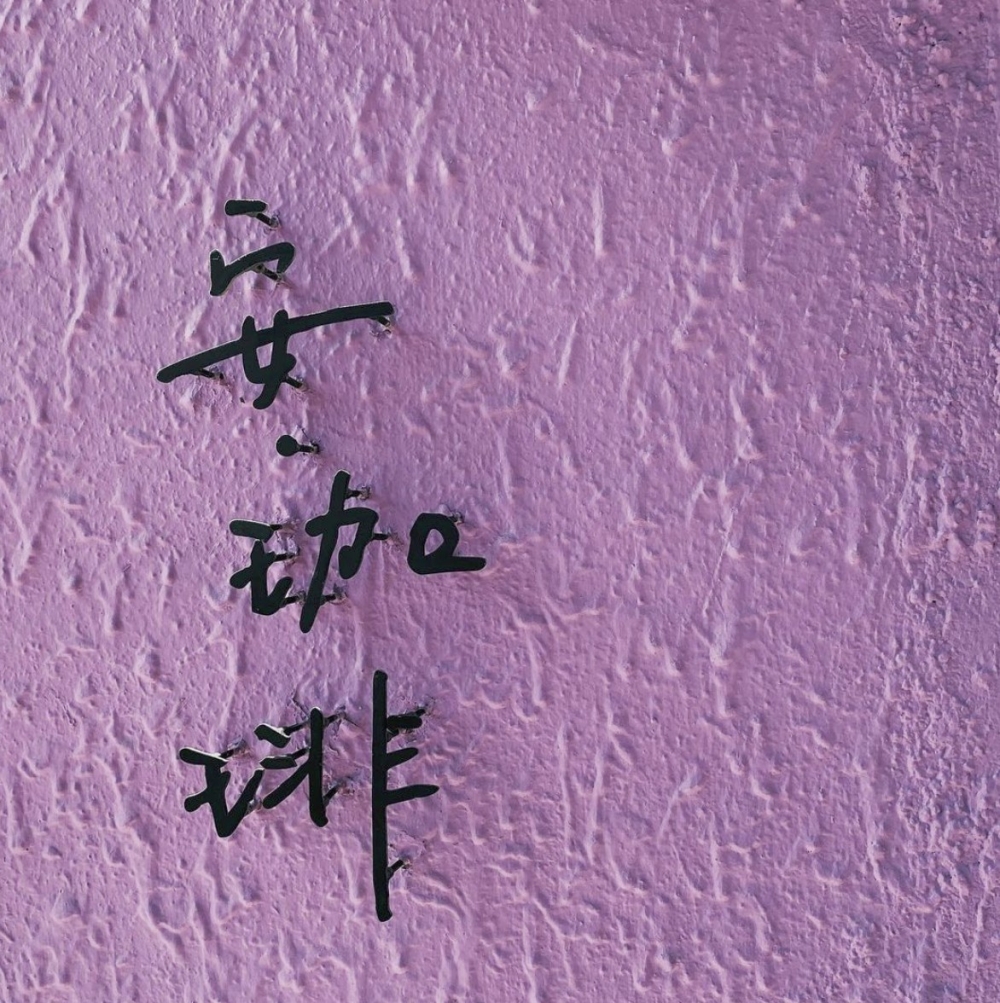 安·珈琲